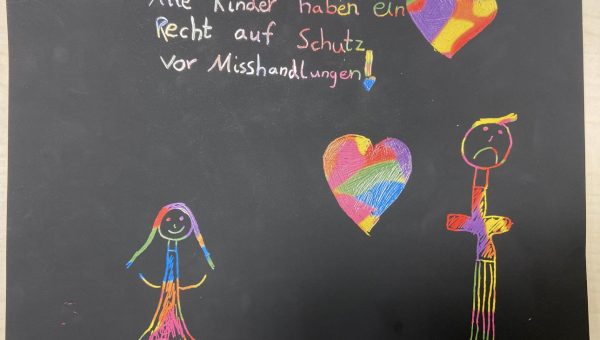 Alle Kinder haben ein
Recht auf Schutz
vor Misshandlungen!